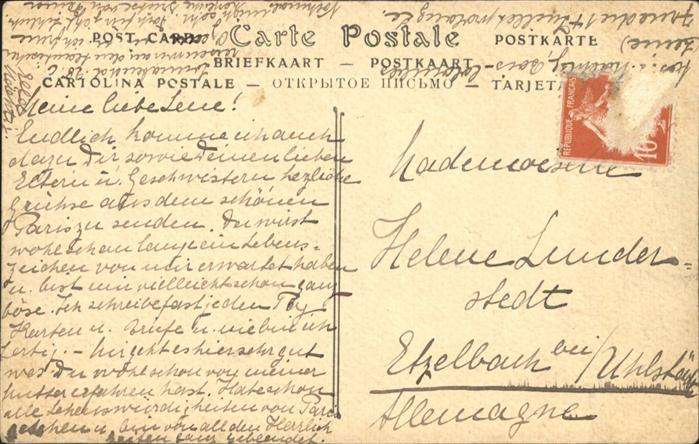 POST CARD Carte Postale POSTKARTE
BRIEFKAART - POSTKAART -
CARTOLINA POSTALE - ОТКРЫТОЕ ПИСЬМО - TARJETA
Meine liebe Lene!
Endlich komme ich auch
dazu Dir sowie deinen lieben
Eltern u. Geschwistern herzliche
Grüsse aus dem schönen
Paris zu senden. Du wirst
wohl schon lange ein Lebens-
zeichen von mir erwartet haben
u. bist mir vielleicht schon ganz
böse. Ich schreibe fast jeden Tag
Karten u. Briefe u. nie bin ich
fertig. - Mir geht es hier sehr gut
was Du wohl schon von meiner
Mutter erfahren hast. Habe schon
alle Sehenswürdigkeiten von Paris
gesehen u. bin von all den Herrlich-
keiten ganz geblendet.
REPUBLIQUE FRANÇAISE
10
Mademoiselle
Helene Lunder-
stedt
Etzelbach bei/Uhlstädt
Allemagne